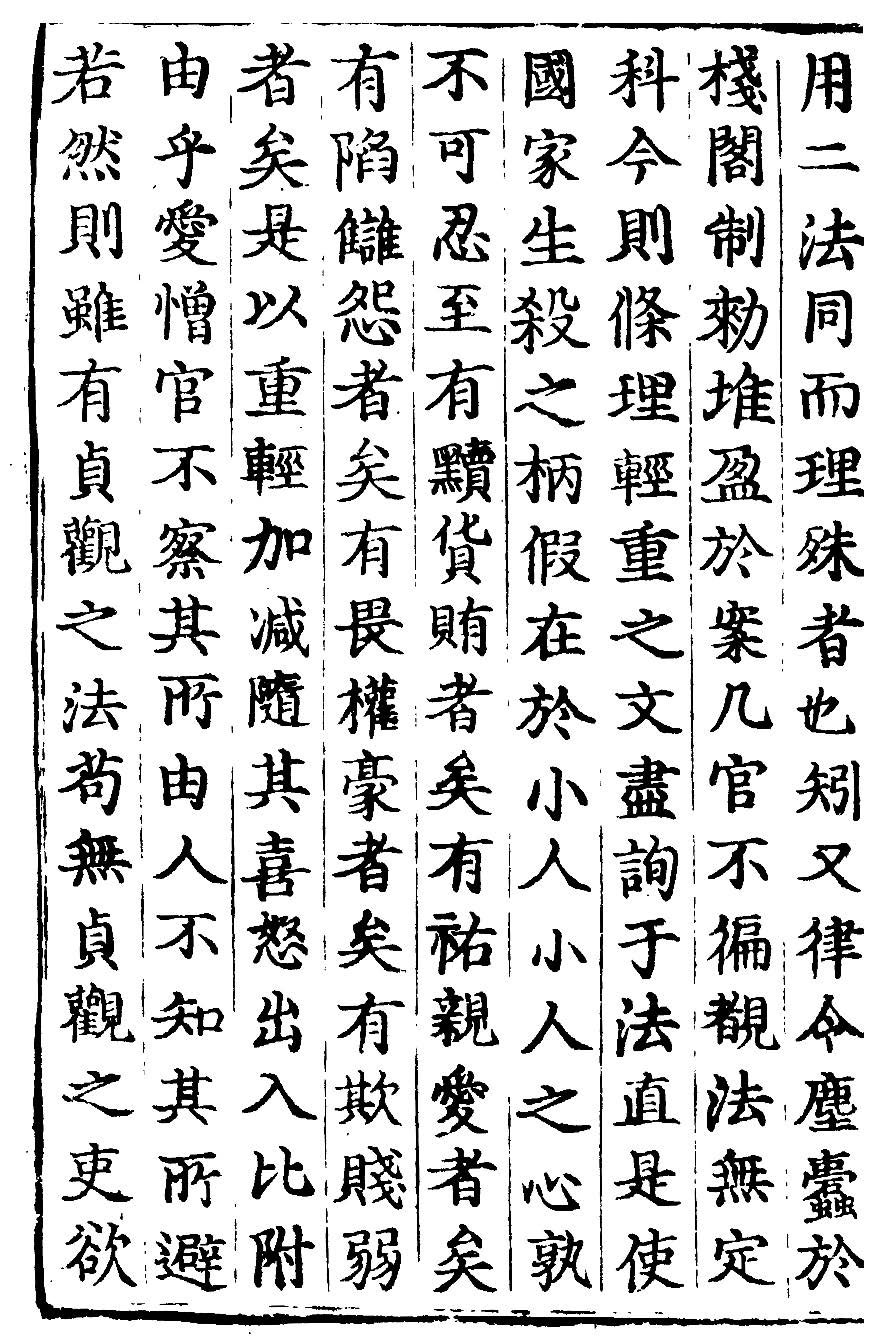 用二法同而理殊者也矧又律令塵蠹於
棧閣制勑堆盈於案几官不徧覩法無定
科今則條理輕重之文盡詢于法直是使
國家生殺之柄假在於小人小人之心孰
不可忍至有黷貨賄者矣有祐親愛者矣
有陷讎怨者矣有畏權豪者矣有欺賤弱
者矣是以重輕加减隨其喜怒出入比附
由乎愛憎官不察其所由人不知其所避
若然則雖有貞觀之法苟無貞觀之吏欲